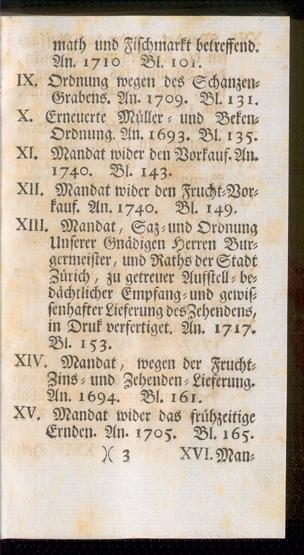 math und Fischmarkt betreffend.
An. 1710 Bl. 101.
IX. Ordnung wegen des Schanzen-
Grabens. An. 1709. Bl. 131.
X. Erneuerte Müller- und Beken-
Ordnung. An. 1693. Bl. 135.
XI. Mandat wider den Vorkauf. An.
1740. Bl. 143.
XII. Mandat wider den Frucht-Vor-
kauf. An. 1740. Bl. 149.
XIII. Mandat, Saz- und Ordnung
Unserer Gnädigen Herren Bur-
germeister, und Raths der Stadt
Zürich, zu getreuer Aufstell- be-
dächtlicher Empfang- und gewis-
senhafter Lieferung des Zehendens,
in Druk verfertiget. An. 1717.
Bl. 153.
XIV. Mandat, wegen der Frucht-
Zins- und Zehenden-Lieferung.
An. 1694. Bl. 161.
XV. Mandat wider das frühzeitige
Ernden. An. 1705. Bl. 165.
)( 3 XVI. Man-